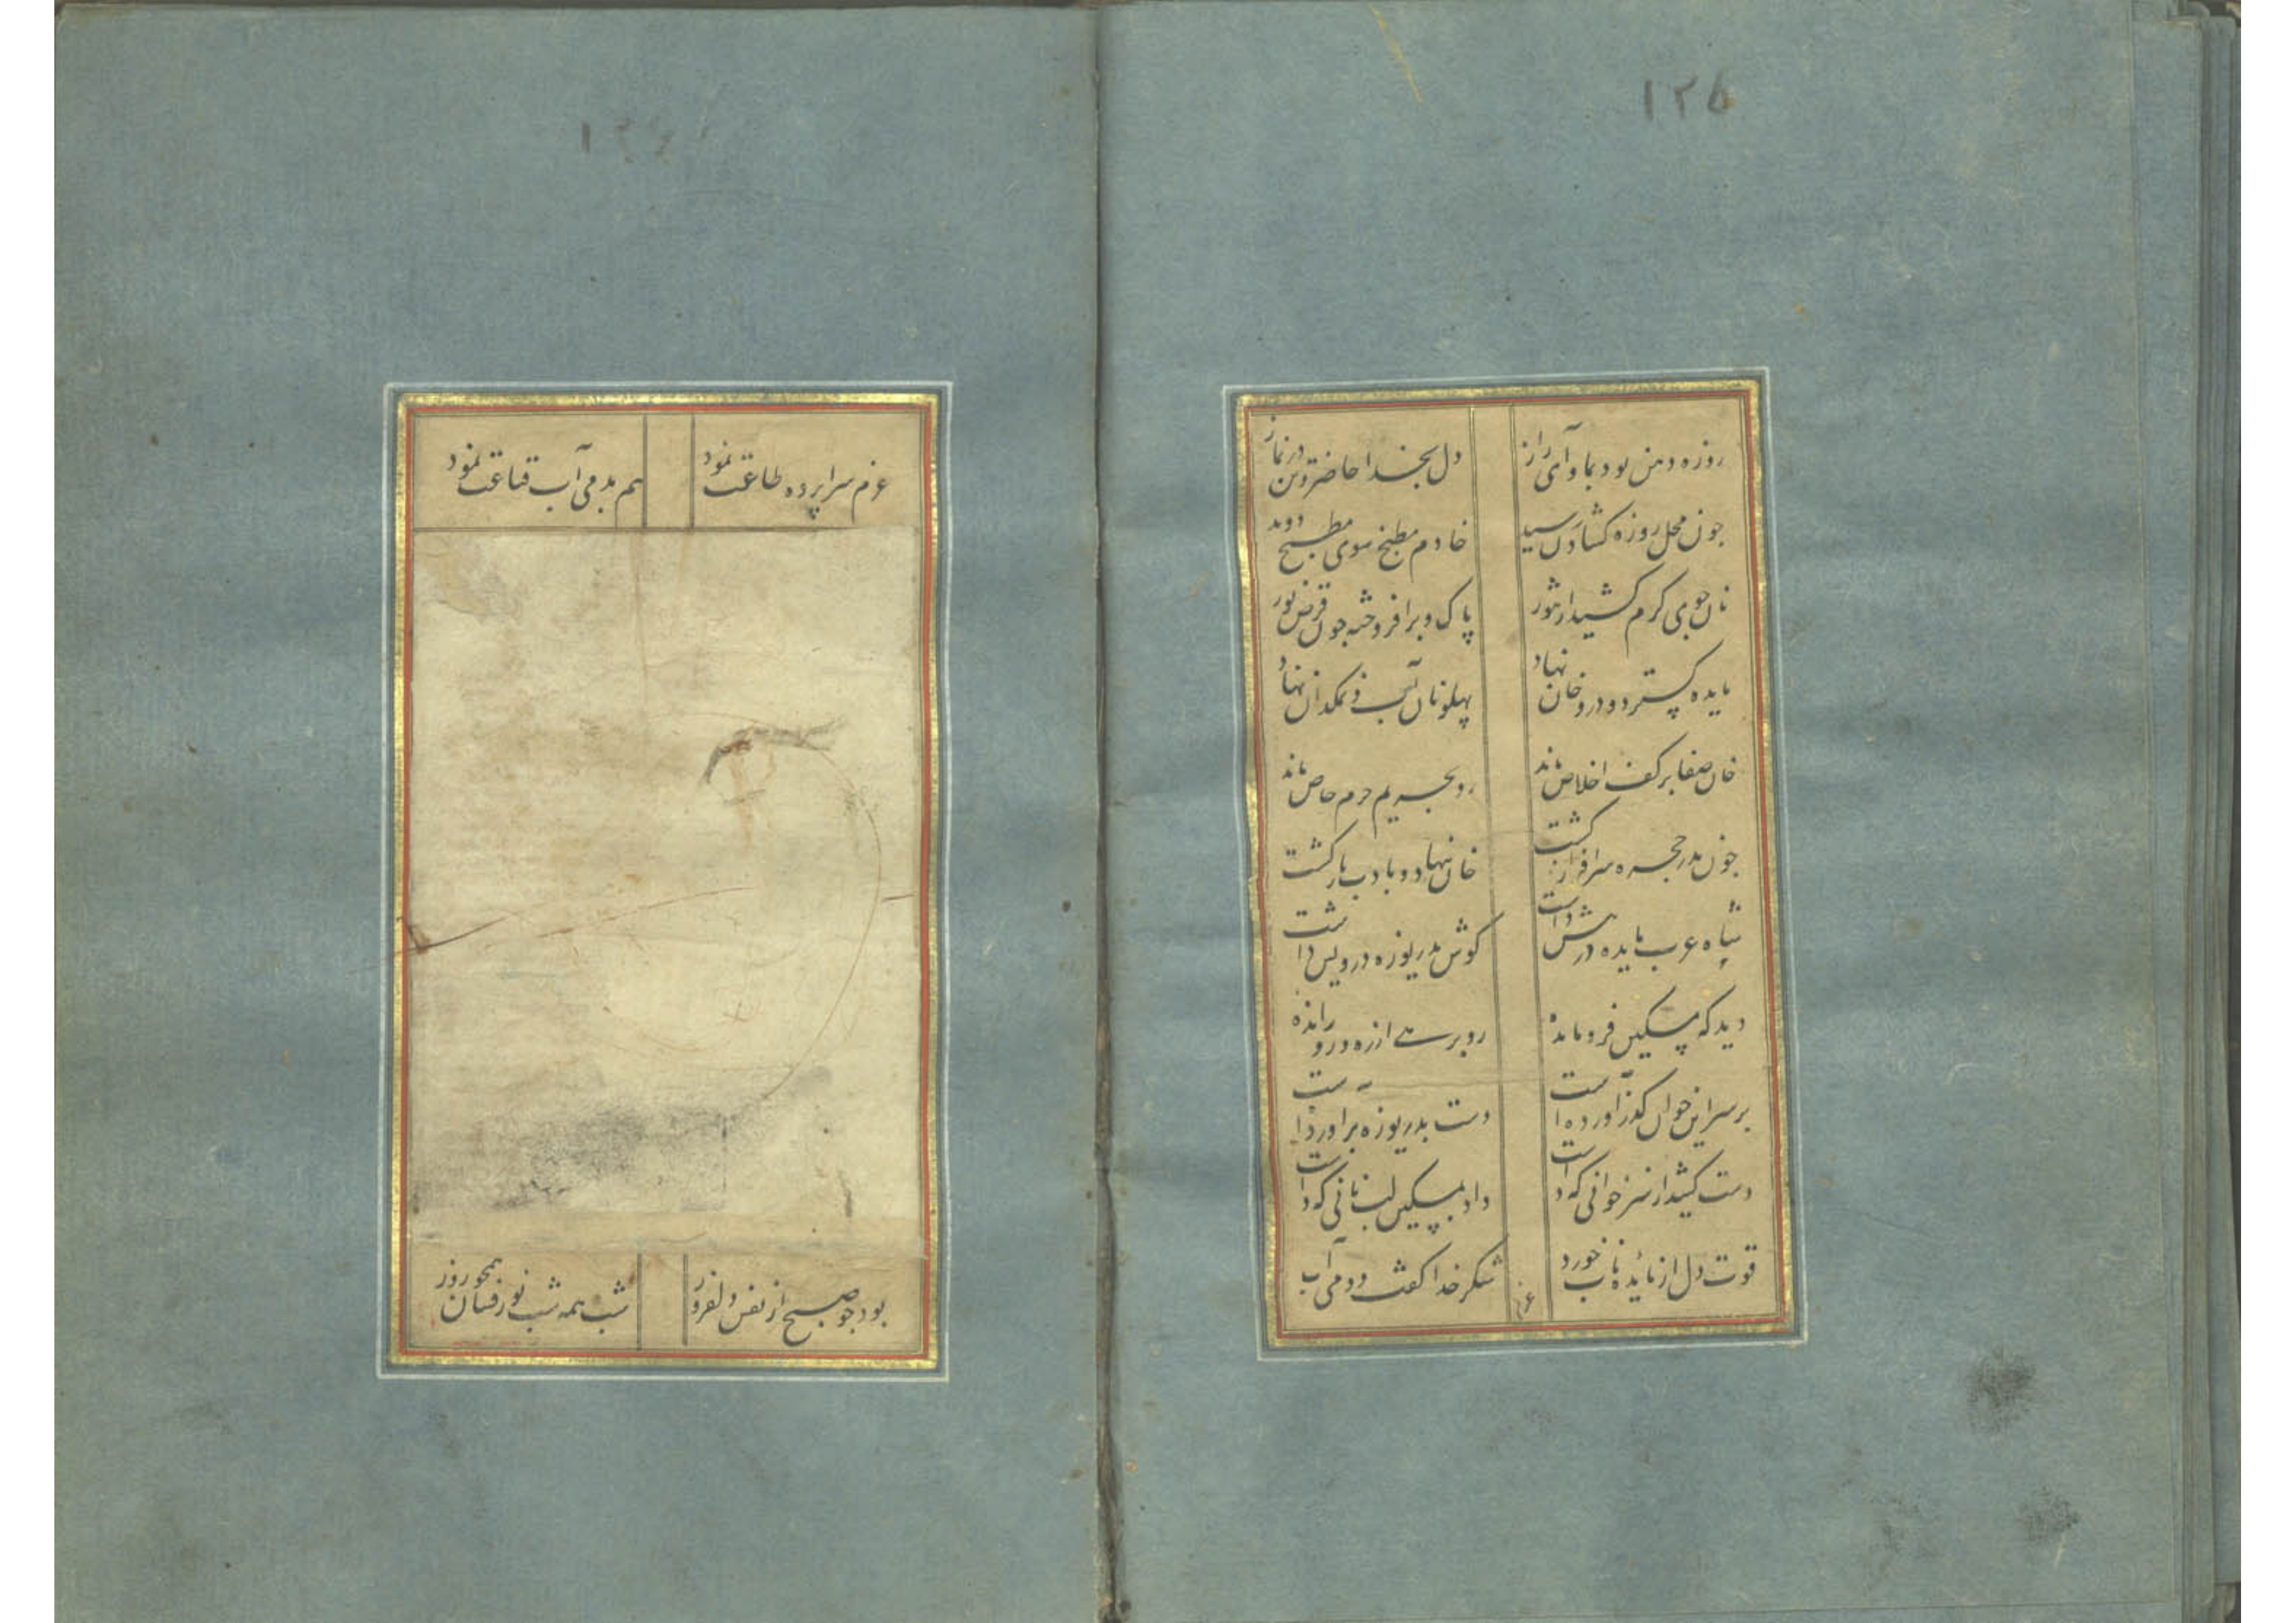 ۱۲۵
روزه دهن بود بماوای راز دل بخدا حاضر و تن در نماز
چون محل روزه گشادن رسید خادم مطبخ سوی مطبخ دوید
نان جوی گرم کشید از تنور پاک و برافروخته چون قرص نور
مایده گسترد و درو خان نهاد پهلو نان آب و نمکدان نهاد
خان صفا بر کف اخلاص ماند رو بحریم حرم خاص ماند
چون بدر حجره سرافراز گشت خان نهاد و بادب بازگشت
شاه عرب مایده در پیش داشت گوش بدریوزه درویش داشت
دید که مسکین فرو مانده رو برهی از ره درو رانده
بر سر این خوان گذر آورده است دست بدریوزه برآورده است
دست کشید از سر خوانی که داشت داد بمسکین لب نانی که داشت
قوت دل از مائده ناب خورد شکر خدا گفت و دمی آب
عزم
عزم سراپرده طاعت نمود هم بدمی آب قناعت نمود
بود چو صبح از نفس دلفروز شب همه شب نور فشان همچو روز